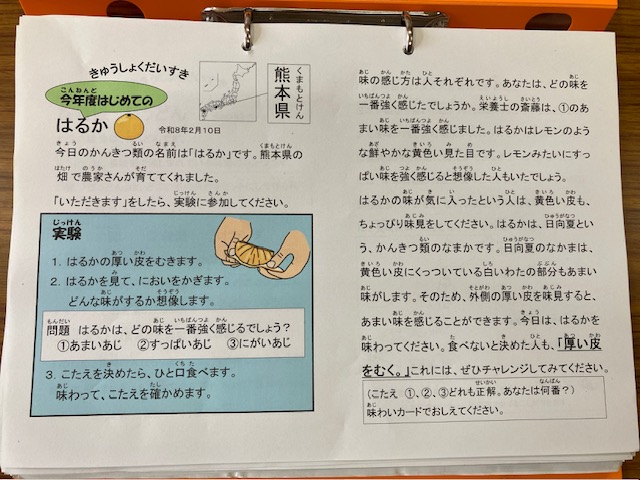 きゅうしょくだいすき
今年度はじめての
はるか
令和8年2月10日
熊本県
今日のかんきつ類の名前は「はるか」です。熊本県の
畑で農家さんが育ててくれました。
「いただきます」をしたら、実験に参加してください。
実験
1. はるかの厚い皮をむきます。
2. はるかを見て、においをかぎます。
どんな味がするか想像します。
問題 はるかは、どの味を一番強く感じるでしょう？
①あまいあじ ②すっぱいあじ ③にがいあじ
3. こたえを決めたら、ひと口食べます。
味わって、こたえを確かめます。
味の感じ方は人それぞれです。あなたは、どの味を
一番強く感じたでしょうか。栄養士の斎藤は、①のあ
まい味を一番強く感じました。はるかはレモンのよう
な鮮やかな黄色い見た目です。レモンみたいにすっ
ぱい味を強く感じると想像した人もいたでしょう。
はるかの味が気に入ったという人は、黄色い皮も、
ちょっぴり味見をしてください。はるかは、日向夏とい
う、かんきつ類のなかまです。日向夏のなかまは、
黄色い皮にくっついている白いわたの部分もあまい
味がします。そのため、外側の厚い皮を味見すると、
あまい味を感じることができます。今日は、はるかを
味わってください。食べないと決めた人も、「厚い皮
をむく。」これには、ぜひチャレンジしてみてください。
（こたえ ①、②、③どれも正解。あなたは何番？）
味わいカードでおしえてください。